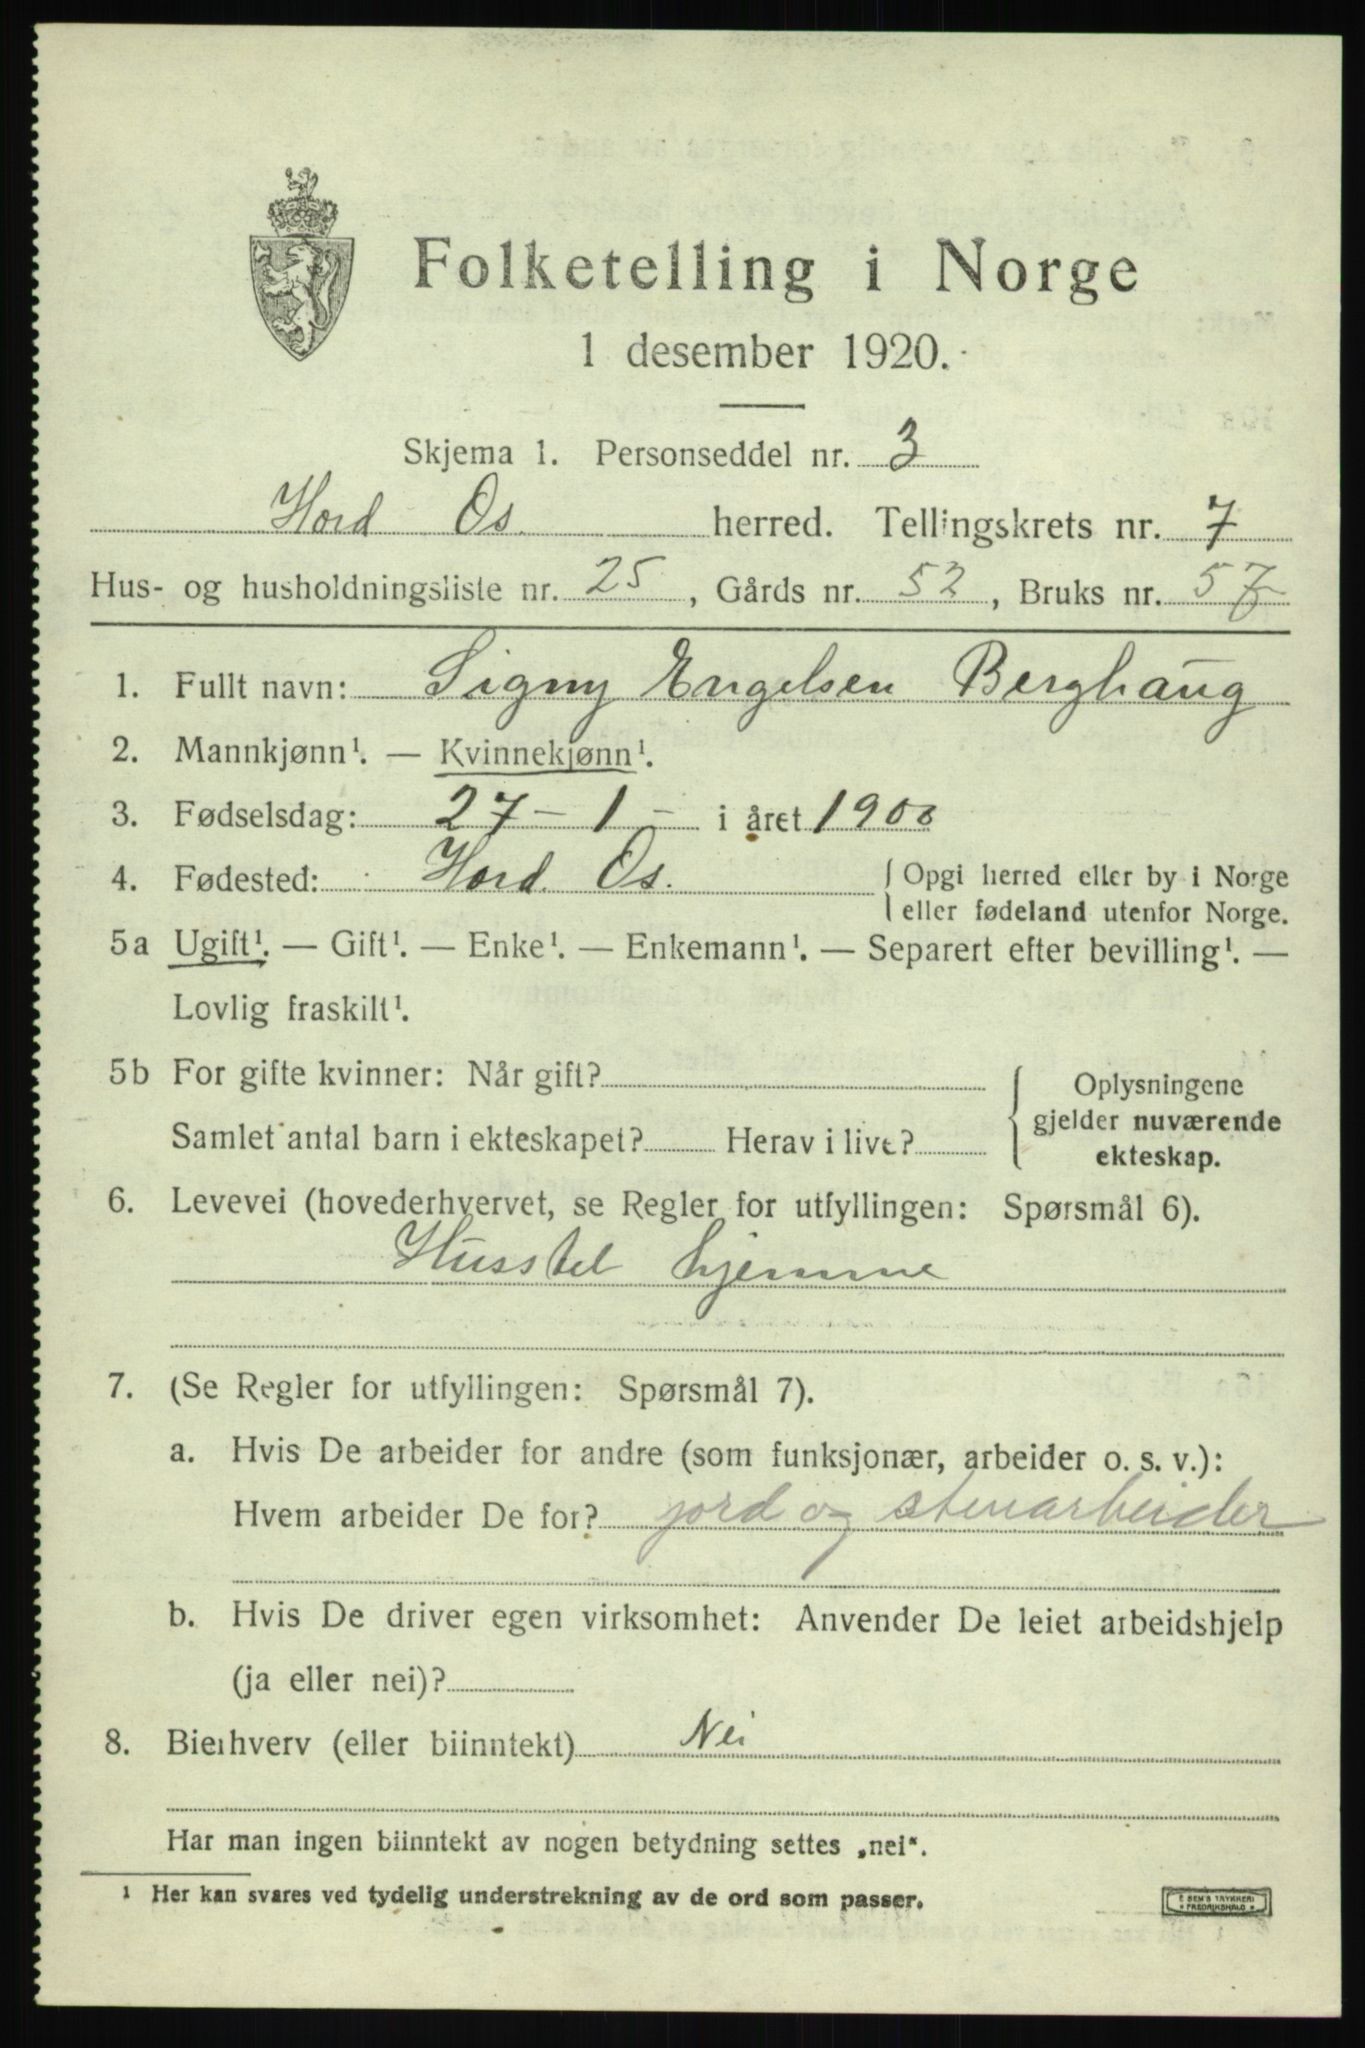 Folketelling i Norge
1 desember 1920.
Skjema 1. Personseddel nr. 3
Hord Os. herred. Tellingskrets nr. 7
Hus- og husholdningsliste nr. 25, Gårds nr. 52, Bruks nr. 57
1. Fullt navn: Signy Engelsen Berghaug
2. Mannkjønn¹. — Kvinnekjønn¹.
3. Fødselsdag: 27 – 1 – i året 1900
4. Fødested: Hord. Os. { Opgi herred eller by i Norge
eller fødeland utenfor Norge.
5a Ugift¹. — Gift¹. — Enke¹. — Enkemann¹. — Separert efter bevilling¹. —
Lovlig fraskilt¹.
5b For gifte kvinner: Når gift?
Samlet antal barn i ekteskapet? Herav i live?
{ Oplysningene
gjelder nuværende
ekteskap.
6. Levevei (hovederhvervet, se Regler for utfyllingen: Spørsmål 6).
Husstel hjemme
7. (Se Regler for utfyllingen: Spørsmål 7).
a. Hvis De arbeider for andre (som funksjonær, arbeider o. s. v.):
Hvem arbeider De for? jord og stenarbeider
b. Hvis De driver egen virksomhet: Anvender De leiet arbeidshjelp
(ja eller nei)?
8. Bierhverv (eller biinntekt) Nei
Har man ingen biinntekt av nogen betydning settes „nei“.
¹ Her kan svares ved tydelig understrekning av de ord som passer.
E SEM'S TRYKKERI
* FREDRIKSHALD *